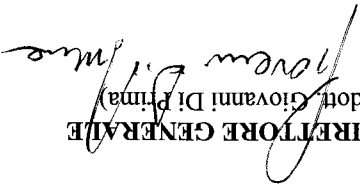 IRETTORE GENERALE
dott. Giovanni Di Prima)